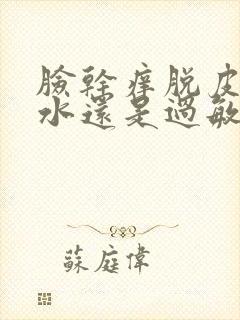 臉幹癢脫皮
水還是過敏
蘇庭偉